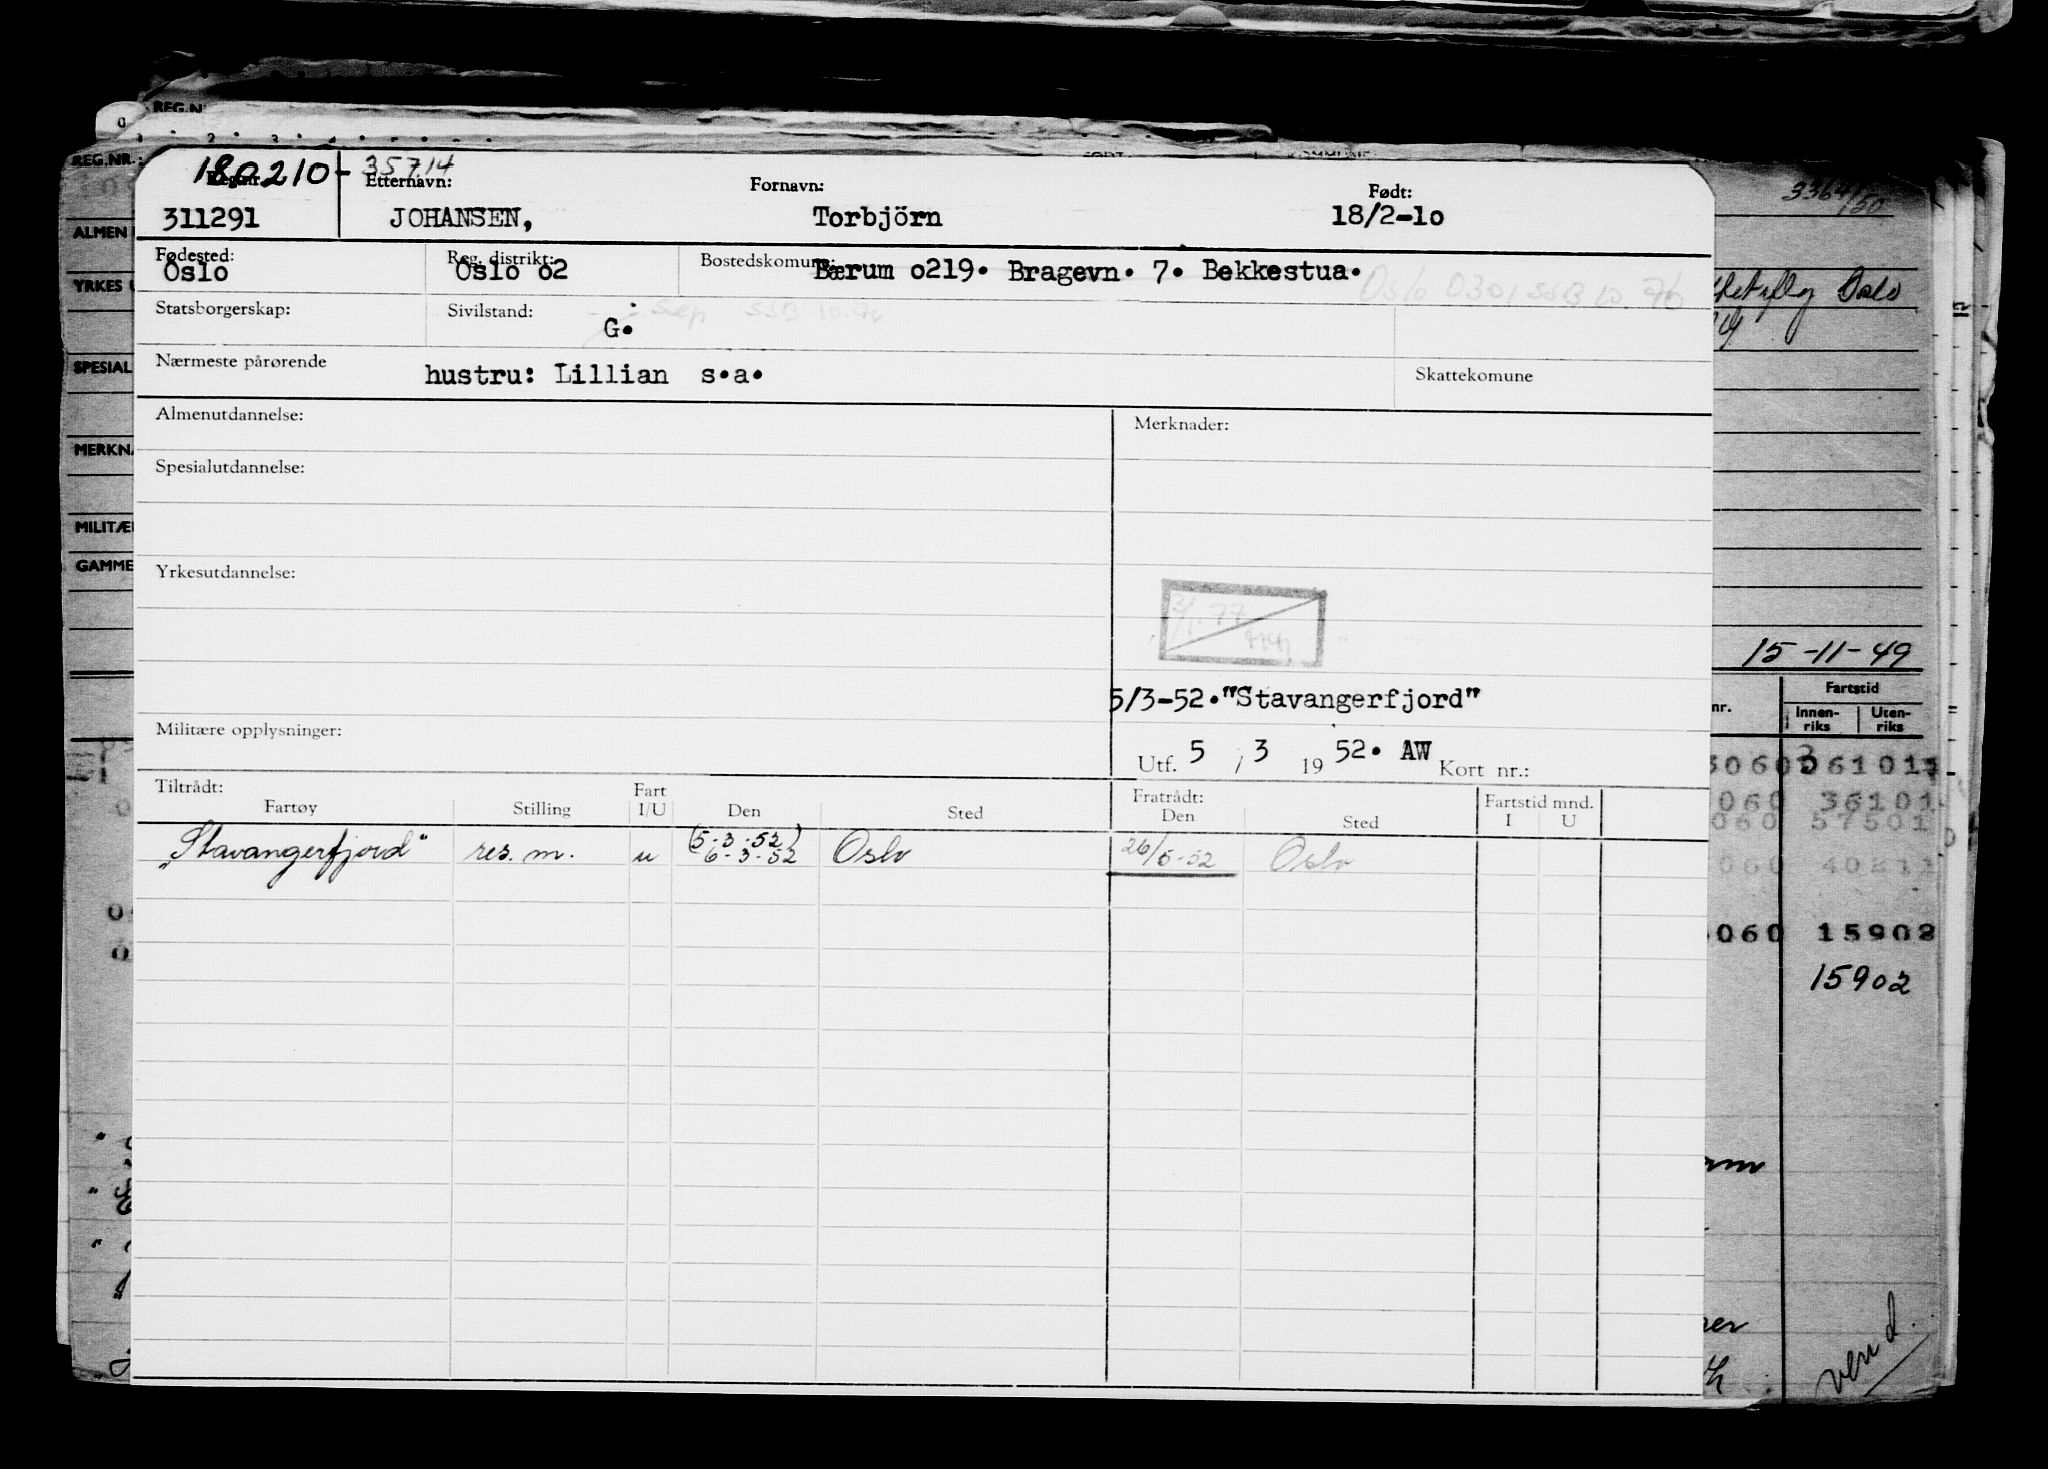 REG.N
REG.NR.:
180210- 35714
Etternavn: Fornavn: Født:
311291 JOHANSEN, Torbjörn 18/2-1o
3364/50
ALMEN
Fødested: Reg. distrikt: Bostedskomune:
Oslo Oslo o2 Bærum o219. Bragevn. 7. Bekkestua. Oslo 0301 SSB 10.76
YRKES
Oslo
Statsborgerskap: Sivilstand: G. sep SSB 10.76
SPESIAL
Nærmeste pårørende hustru: Lillian s.a. Skattekomune
Almenutdannelse: Merknader:
MERKNA
Spesialutdannelse:
MILITÆ
GAMME
Yrkesutdannelse:
3/1.77
15-11-49
5/3-52."Stavangerfjord"
Militære opplysninger:
Utf. 5 / 3 19 52. AW Kort nr.:
nr. Fartstid
Innen-riks Uten-riks
Tiltrådt: Fratrådt:
Fartøy Stilling Fart I/U Den Sted Den Sted Fartstid mnd. I U
"Stavangerfjord" res. m. u (5-3-52) 6-3-52 Oslo 26/5-52 Oslo
36101
060 57501
060 15902
15902
vend.